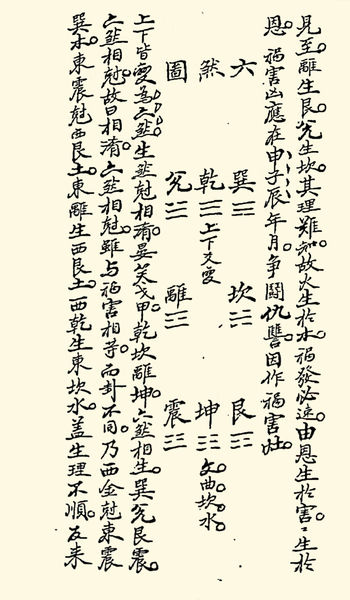 見至。離生艮。兌生坎。其理難知。故火生於水。禍發必速。由恩生於害。害生於
恩。禍害凶應在申子辰年月。爭鬪仇讐。因作禍害灶。
六 巽☴ 坎☵ 艮☶
煞 乾☰上下又變 坤☷文曲坎水。
圖 兌☱ 離☲ 震☳
上下皆變為六煞。生煞尅相淆。晏笑戈甲。乾坎離坤。六煞相生。巽兌艮震。
六煞相尅。故曰相淆。六煞相尅。雖与禍害相等。而卦不同。乃西金尅東震
巽木。東震尅西艮土。東離生西艮土。西乾生東坎水。蓋生理不順。反来